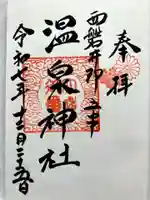 奉拝
西磐井郡二之宮
温泉神社
令和七年十二月二十五日